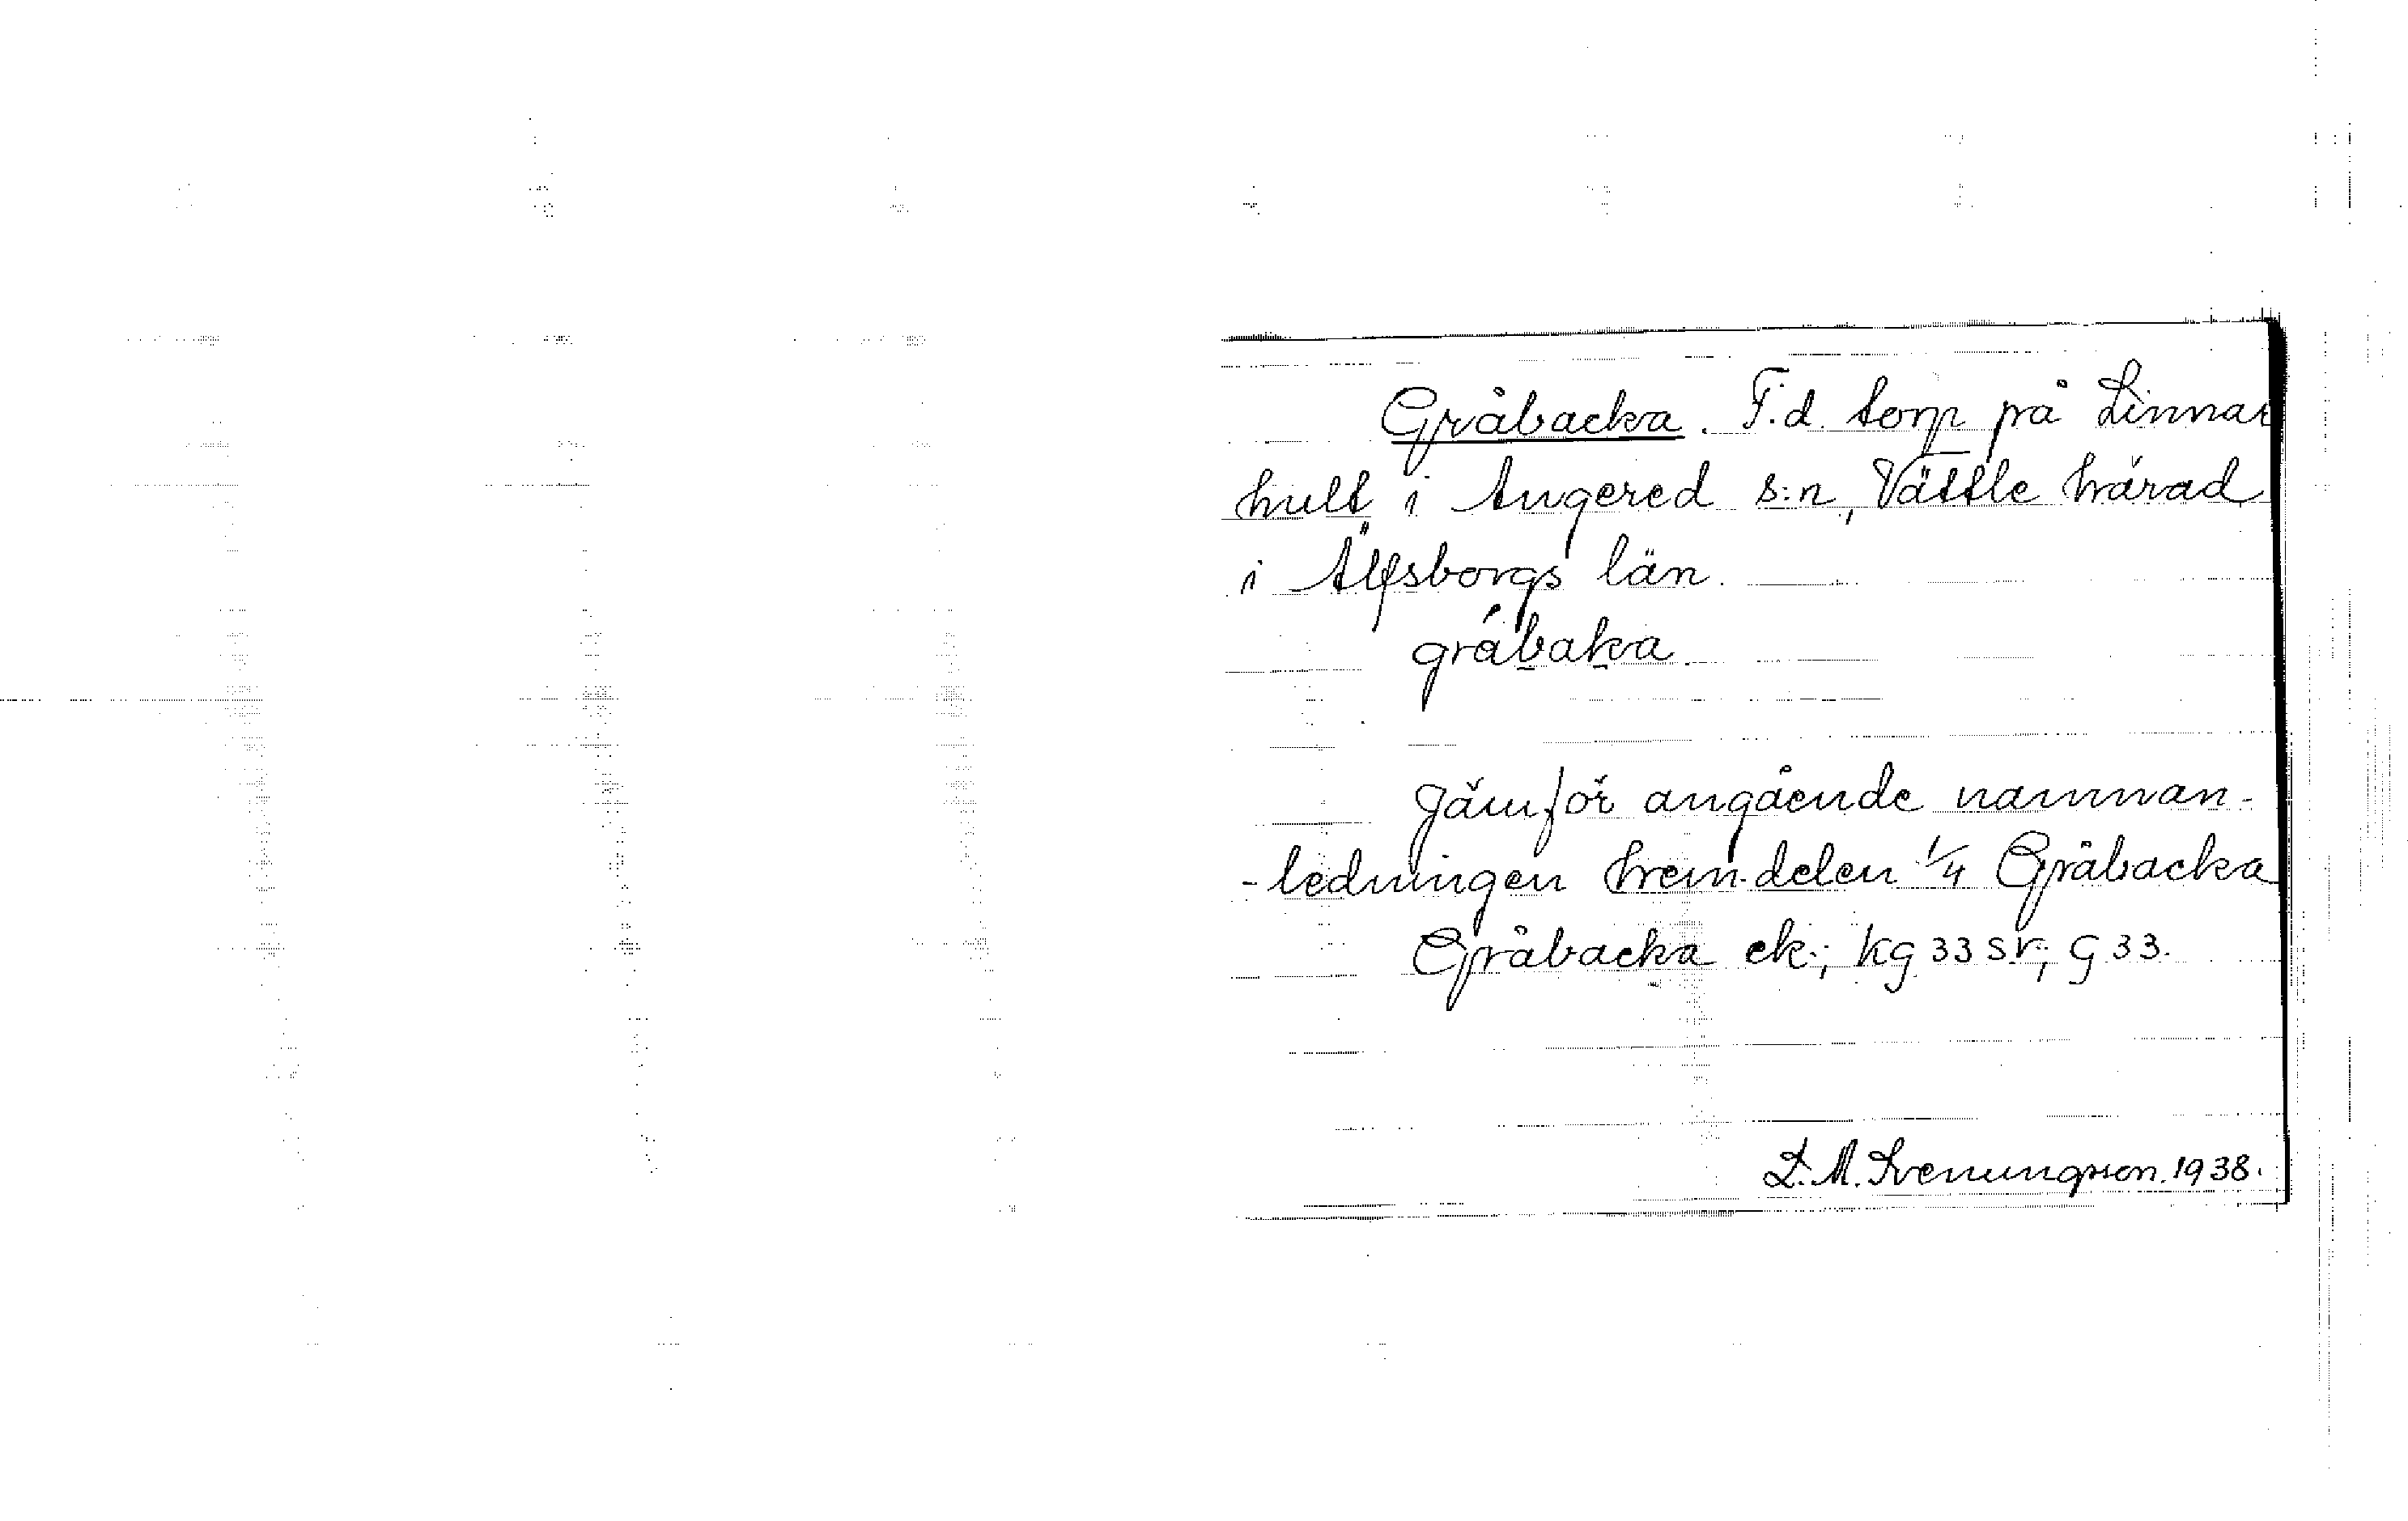 Gråbacka. F.d. torp på Linnar
hult i Angered s:n, Vättle härad
i Älfsborgs län.
gråbaka
Jämför angående namnan-
-ledningen hem.delen 1/4 Gråbacka
Gråbacka ek.; kg 33 sr; G 33.
L. M. Svenungsson. 1938.